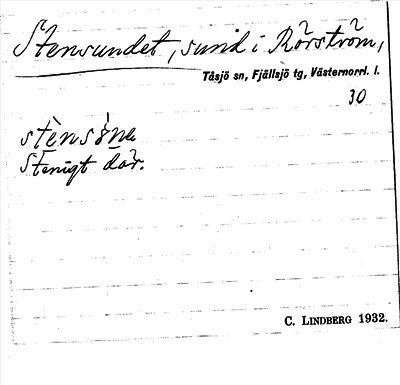 Stensundet, sund i Rörström,
Tåsjö sn, Fjällsjö tg, Västernorrl. l.
30
Stenigt där.
C. LINDBERG 1932.